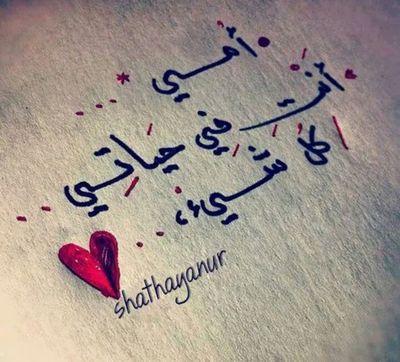 أمي
أنتِ
كل شيء، في حياتي
shathayanur